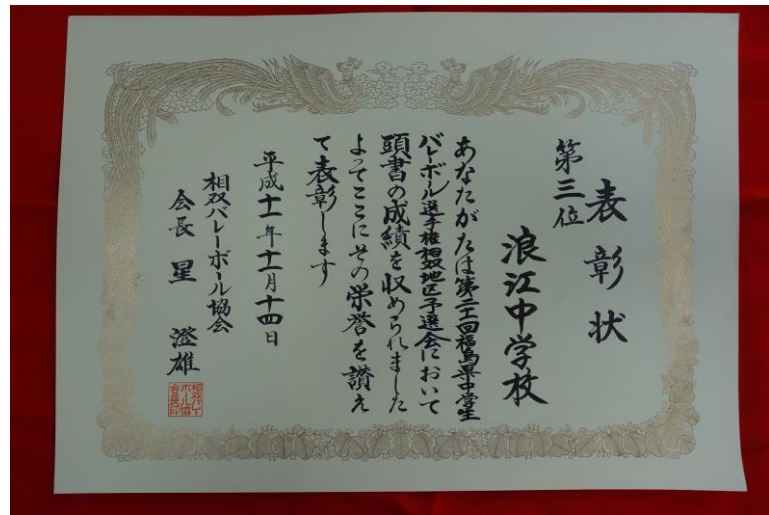 表彰状
第三位
浪江中学校
あなたがたは第二十一回福島県中学生
バレーボール選手権相双地区予選会において
頭書の成績を収められました
よってここにその栄誉を讃え
て表彰します
平成十一年十一月十四日
相双バレーボール協会
会長 星 澄雄
相双バレー
ボール協
会長印